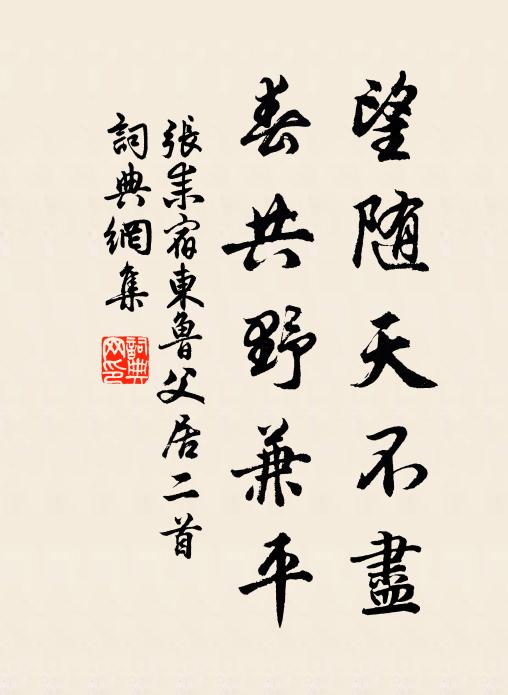 望随天不盡
春共野兼平
張耒宿東魯父居二首
詞典網集
詞典
网印